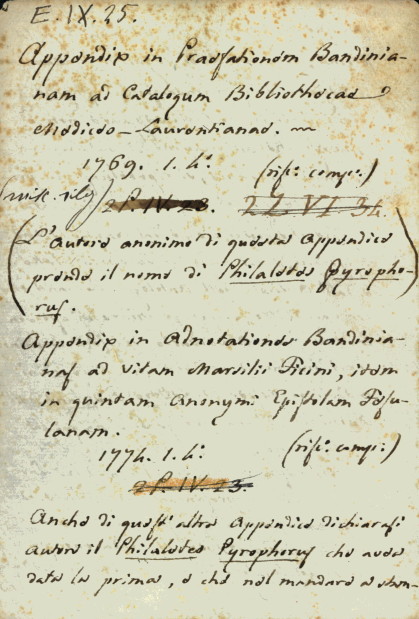 E. IX. 25.
Appendix in Praefationem Bandinia-
nam ad Catalogum Bibliothecae
Mediceo-Laurentianae.
1769. 1. 4.º (risc. comp.)
22. VI. 34.
(L'autore anonimo di questa Appendice
prende il nome di Philaletes Pyropho-
rus.
Appendix in Adnotationes Bandinia-
nas ad vitam Marsilii Ficini, item
in quintam Anonymi Epistolam Fesu-
lanam.
1774. 1. 4.º (risc. comp.)
2P. IV. 23.
Anche di quest' altra Appendice dichiarasi
autore il Philaletes Pyrophorus che avea
data la prima, e che nel mandare a stam-